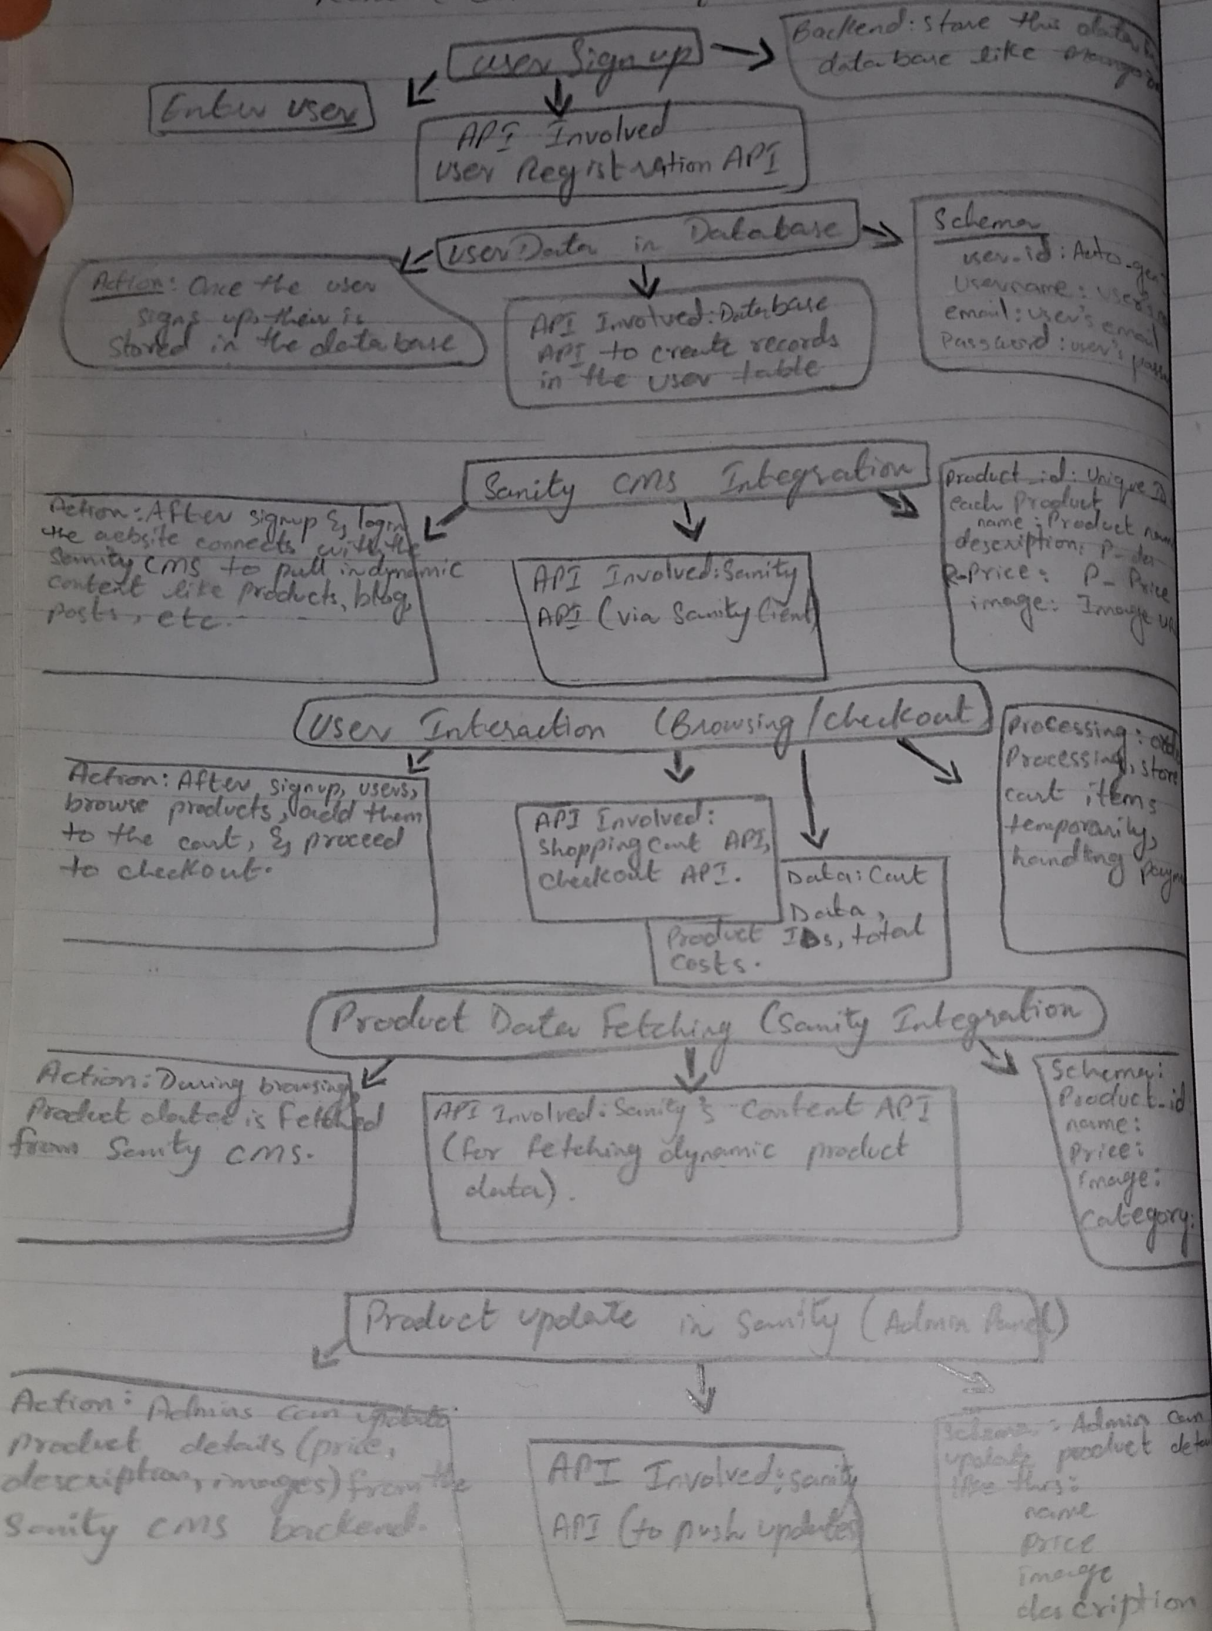 User Sign up
Backend: store this data in
database like
Enter user
API Involved
User Registration API
User Data in Database
Action: Once the user
signs up, their is
stored in the database
API Involved: Database
API to create records
in the user table
Schema
user_id: Auto-gen
Username: user's
email: user's email
Password: user's passw
Sanity CMS Integration
Action: After signup & login
the website connects with the
Sanity CMS to pull in dynamic
content like products, blog,
posts, etc.
API Involved: Sanity
API (via Sanity Client)
Product_id: Unique ID
each Product
name: Product name
description: P-des
P-Price: P-Price
image: Image
User Interaction (Browsing/checkout)
Action: After signup, users,
browse products, add them
to the cart, & proceed
to checkout.
API Involved:
Shopping cart API,
checkout API.
Data: Cart
Data,
Product IDs, total
Costs.
Processing:
Processing, store
cart items
temporarily,
handling paym
Product Data Fetching (Sanity Integration
Action: During browsing,
Product data is Fetched
from Sanity CMS.
API Involved: Sanity's Content API
(for fetching dynamic product
data).
Schema:
Product_id
name:
Price:
Image:
Category:
Product update in Sanity (Admin Panel)
Action: Admins can update
Product details (price,
description, images) from the
Sanity CMS backend.
API Involved: sanity
API (to push updates)
Schema: Admin can
update product deta
like this:
name
price
image
description